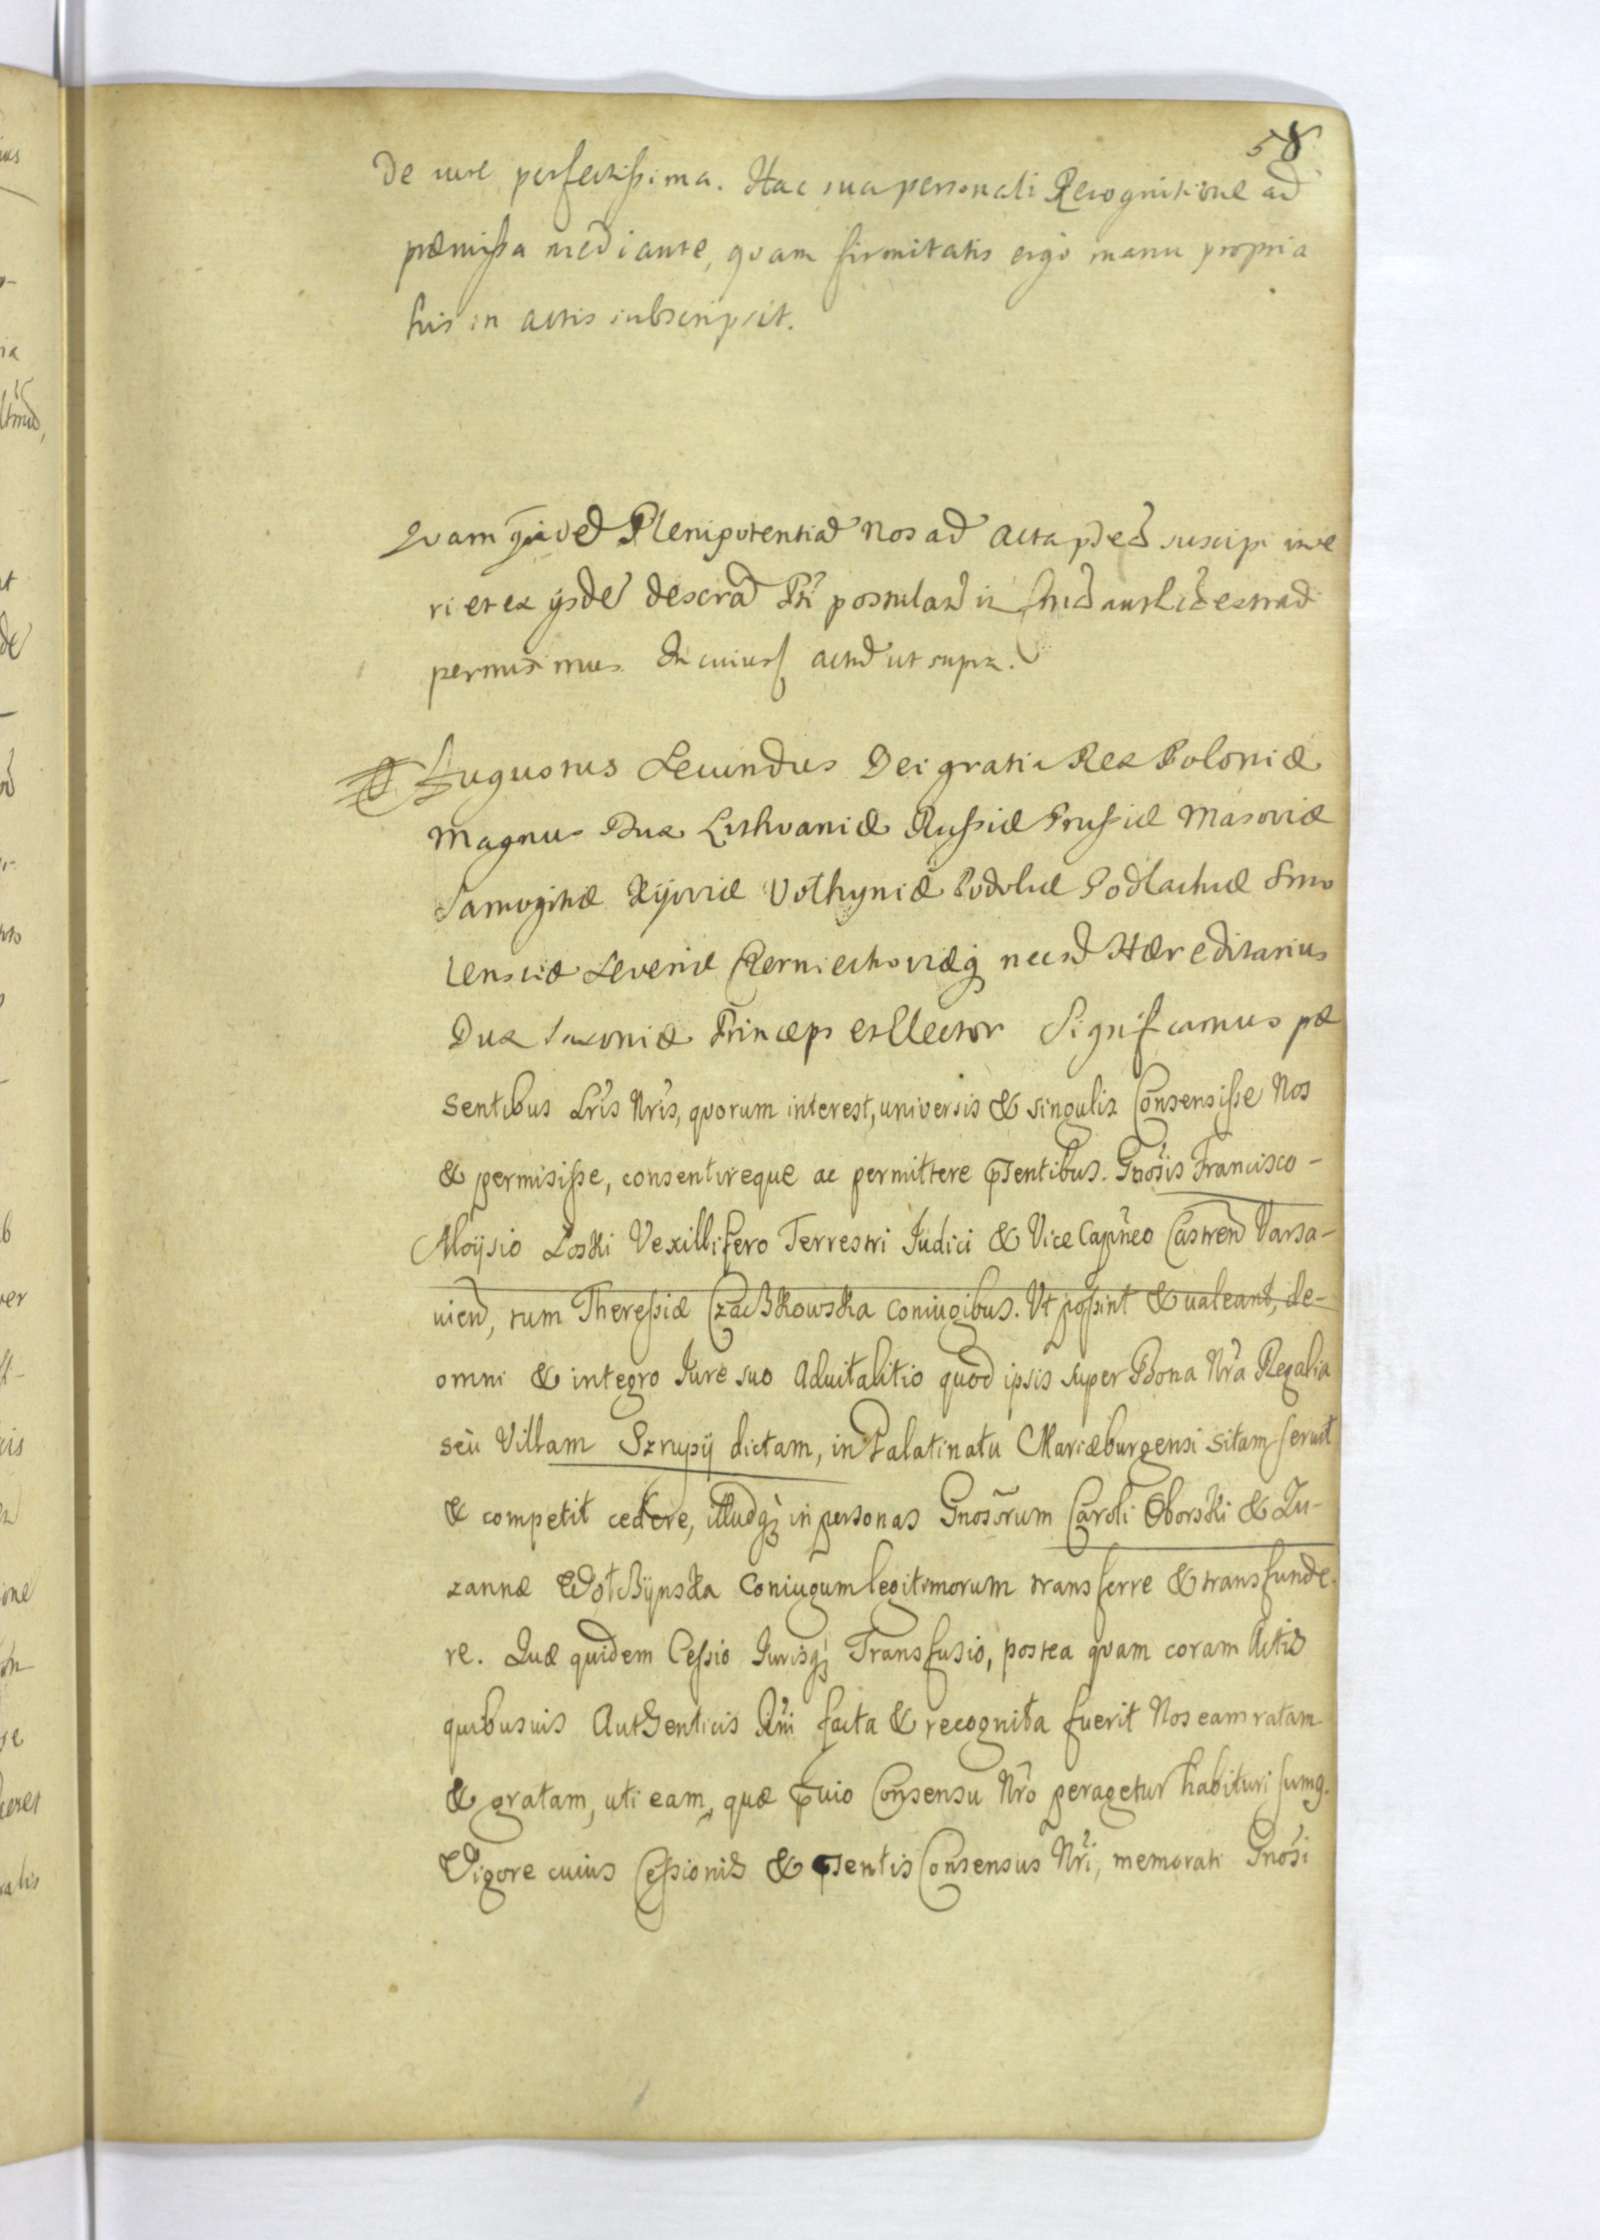 58
De iure perfectissima. Hac sua personali Recognitione ad
præmissa mediante, quam firmitatis ergo manu propria
his in actis subscripsit.
Quam quidē Plenipotentiā Nos ad Acta
ri et ex ijsdē postulan
permisimus. In cuius actū ut supra.
Augustus Secundus Dei gratia Rex Poloniæ
Magnus Dux Lithvaniæ Russiæ Prussiæ Masoviæ
Samogitiæ Kijoviæ Volhyniæ Podoliæ Podlachiæ Smo
lensciæ Severiæ Czerniechoviæq; necnō Hæreditarius
Dux Saxoniæ Princeps et Elector Significamus præ
sentibus Lr̃is Nr̃is, quorum interest, universis & singulis Consensisse Nos
& permisisse, consentireque ac permittere pn̄tibus. Gnosis Francisco-
Aloÿsio Loski Vexillifero Terrestri Judici & Vice Capneo Castren Varsa-
vien, tum Theressiæ Czaßkowska coniugibus. Vt possint & ualeant, de-
omni & integro Iure suo Aduitalitio quod ipsis super Bona Nr̃a Regalia
seu Villam Szrupij dictam, in Palatinatu Mariæburgensi sitam seruit
& competit cedere, illudq; in personas Gnosorum Caroli Oborski & Zu-
zannæ Wołßÿnska Coniugum legitimorum transferre & transfunde-
re. Quæ quidem Cessio Iurisq; Transfusio, postea quam coram Actis
quibusuis Authenticis Rñi facta & recognita fuerit Nos eam ratam
& gratam, uti eam, quæ p̄uio Consensu Nr̃o peragetur habituri sumq.
Vigore cuius Cessionis & p̄sentis Consensus Nr̃i, memorati Gnosi